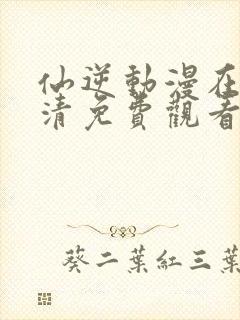 仙逆動漫在
清免費觀看
葵二葉紅三葉